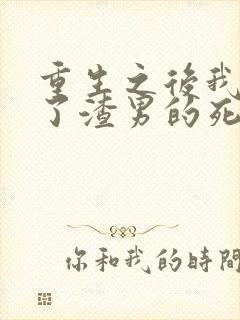 重生之後我
了渣男的死
你和我的時間